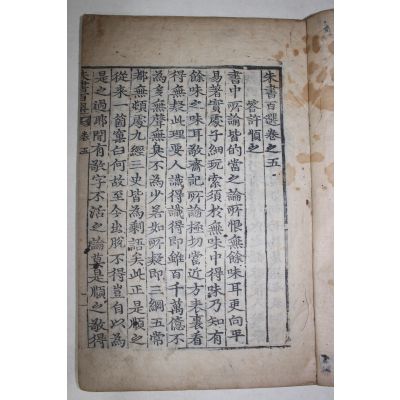 朱書百選卷之五
答許順之
書中所論皆的當之論所恨無餘味耳更向平
易着實處子細玩索須於無味中得味乃知有
餘味之味耳敬齋記所論極切當近方表裏看
得無疑此理要人識得識得即雖百千萬億不
為多無聲無臭不為少若如所疑即三綱五常
都無頓處九經三史皆為剩語矣此正是順之
從来一箇窠臼何故至今出脫不得豈自以為
是之過耶聞有敬字不活之論莫是順之敬得
朱書百選 卷五